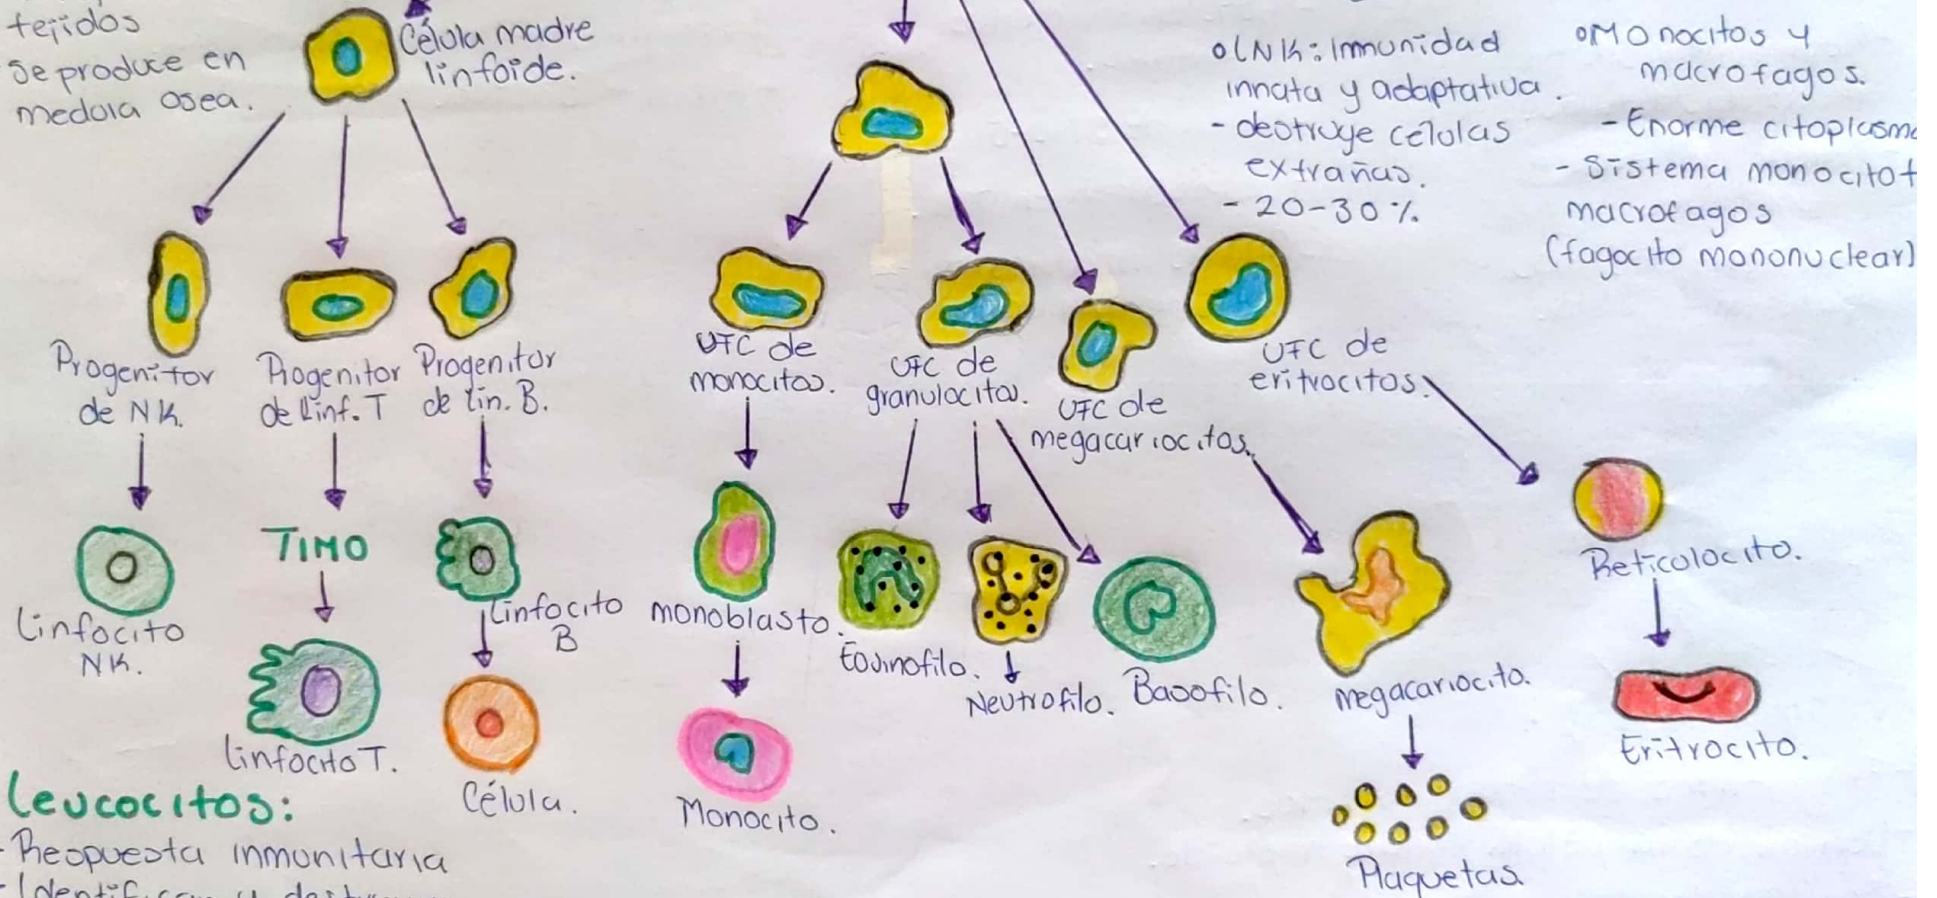 tejidos
se produce en
medula osea.
Célula madre
linfoide.
oLNK: Inmunidad
innata y adaptativa.
- destruye celulas
extrañas.
- 20-30%
oMonocitos y
macrofagos.
- Enorme citoplasma
- Sistema monocitot
macrofagos
(fagocito mononuclear)
Progenitor
de NK.
Progenitor
de Linf. T
Progenitor
de Lin. B.
UFC de
monocitos.
UFC de
granulocitos.
UFC de
megacariocitos.
UFC de
eritrocitos.
Linfocito
NK.
TIMO
Linfocito T.
Linfocito
B
Célula.
monoblasto.
Monocito.
Eosinofilo.
Neutrofilo.
Basofilo.
megacariocito.
Plaquetas.
Reticulocito.
Eritrocito.
Leucocitos:
- Respuesta inmunitaria